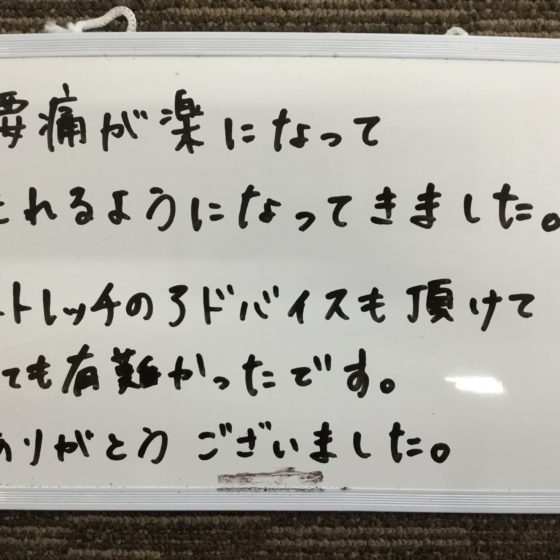 腰痛が楽になって
れるようになってきました。
ストレッチのアドバイスも頂けて
ても有難かったです。
ありがとうございました。